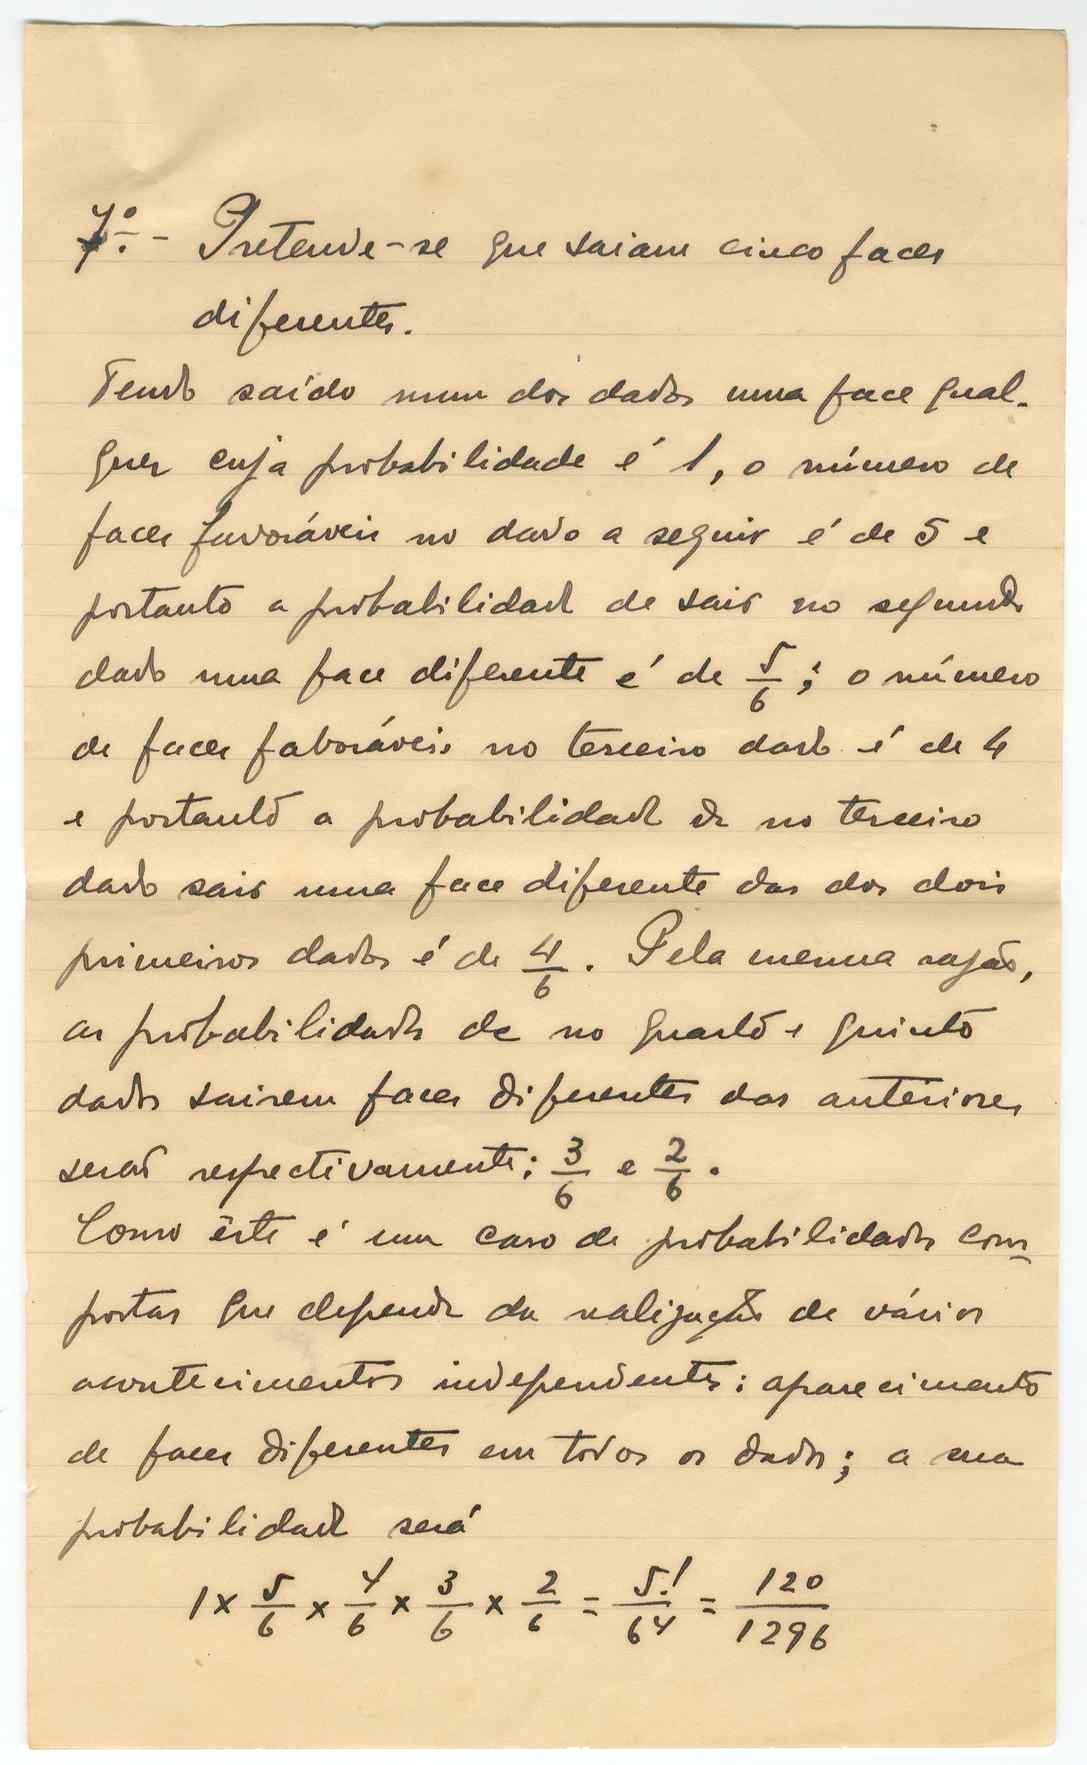 7º.- Pretende-se que saiam cinco faces
diferentes.
Tendo saído num dos dados uma face qual-
quer cuja probabilidade é 1, o número de
faces favoráveis no dado a seguir é de 5 e
portanto a probabilidade de sair no segundo
dado uma face diferente é de 5/6; o número
de faces faboráveis no terceiro dado é de 4
e portanto a probabilidade de no terceiro
dado sair uma face diferente das dos dois
primeiros dados é de 4/6. Pela mesma razão,
as probabilidades de no quarto e quinto
dados sairem faces diferentes das anteriores
serão respectivamente: 3/6 e 2/6.
Como êste é um caso de probabilidades com-
postas que depende da realização de vários
acontecimentos independentes: aparecimento
de faces diferentes em todos os dados; a sua
probabilidade será
1 × 5/6 × 4/6 × 3/6 × 2/6 = 5!/6⁴ = 120/1296